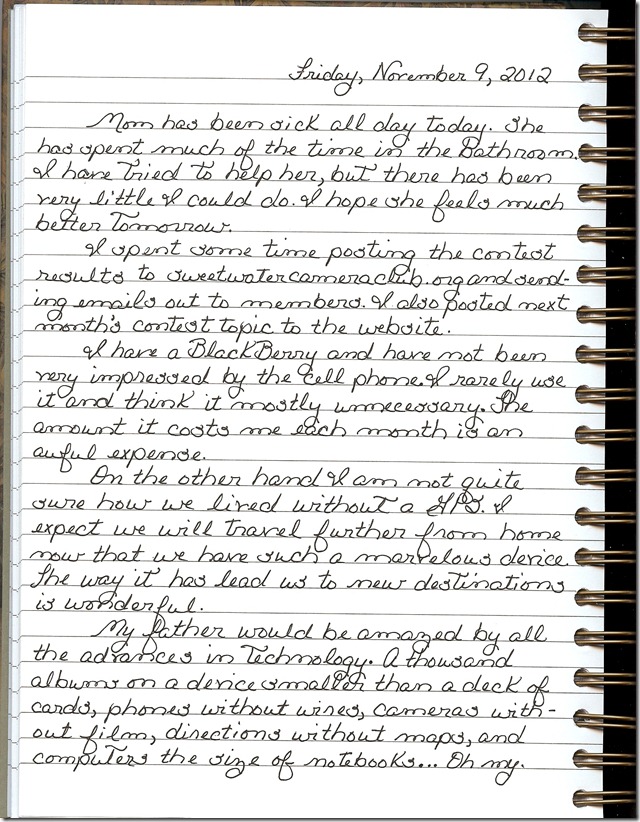 Friday, November 9, 2012
Mom has been sick all day today. She
has spent much of the time in the Bathroom.
I have tried to help her, but there has been
very little I could do. I hope she feels much
better tomorrow.
I spent some time posting the contest
results to sweetwatercameraclub.org and send-
ing emails out to members. I also posted next
month's contest topic to the website.
I have a BlackBerry and have not been
very impressed by the cell phone. I rarely use
it and think it mostly unnecessary. The
amount it costs me each month is an
awful expense.
On the other hand I am not quite
sure how we lived without a GPS. I
expect we will travel further from home
now that we have such a marvelous device.
The way it has lead us to new destinations
is wonderful.
My father would be amazed by all
the advances in technology. A thousand
albums on a device smaller than a deck of
cards, phones without wires, cameras with-
out film, directions without maps, and
computers the size of notebooks... Oh my.